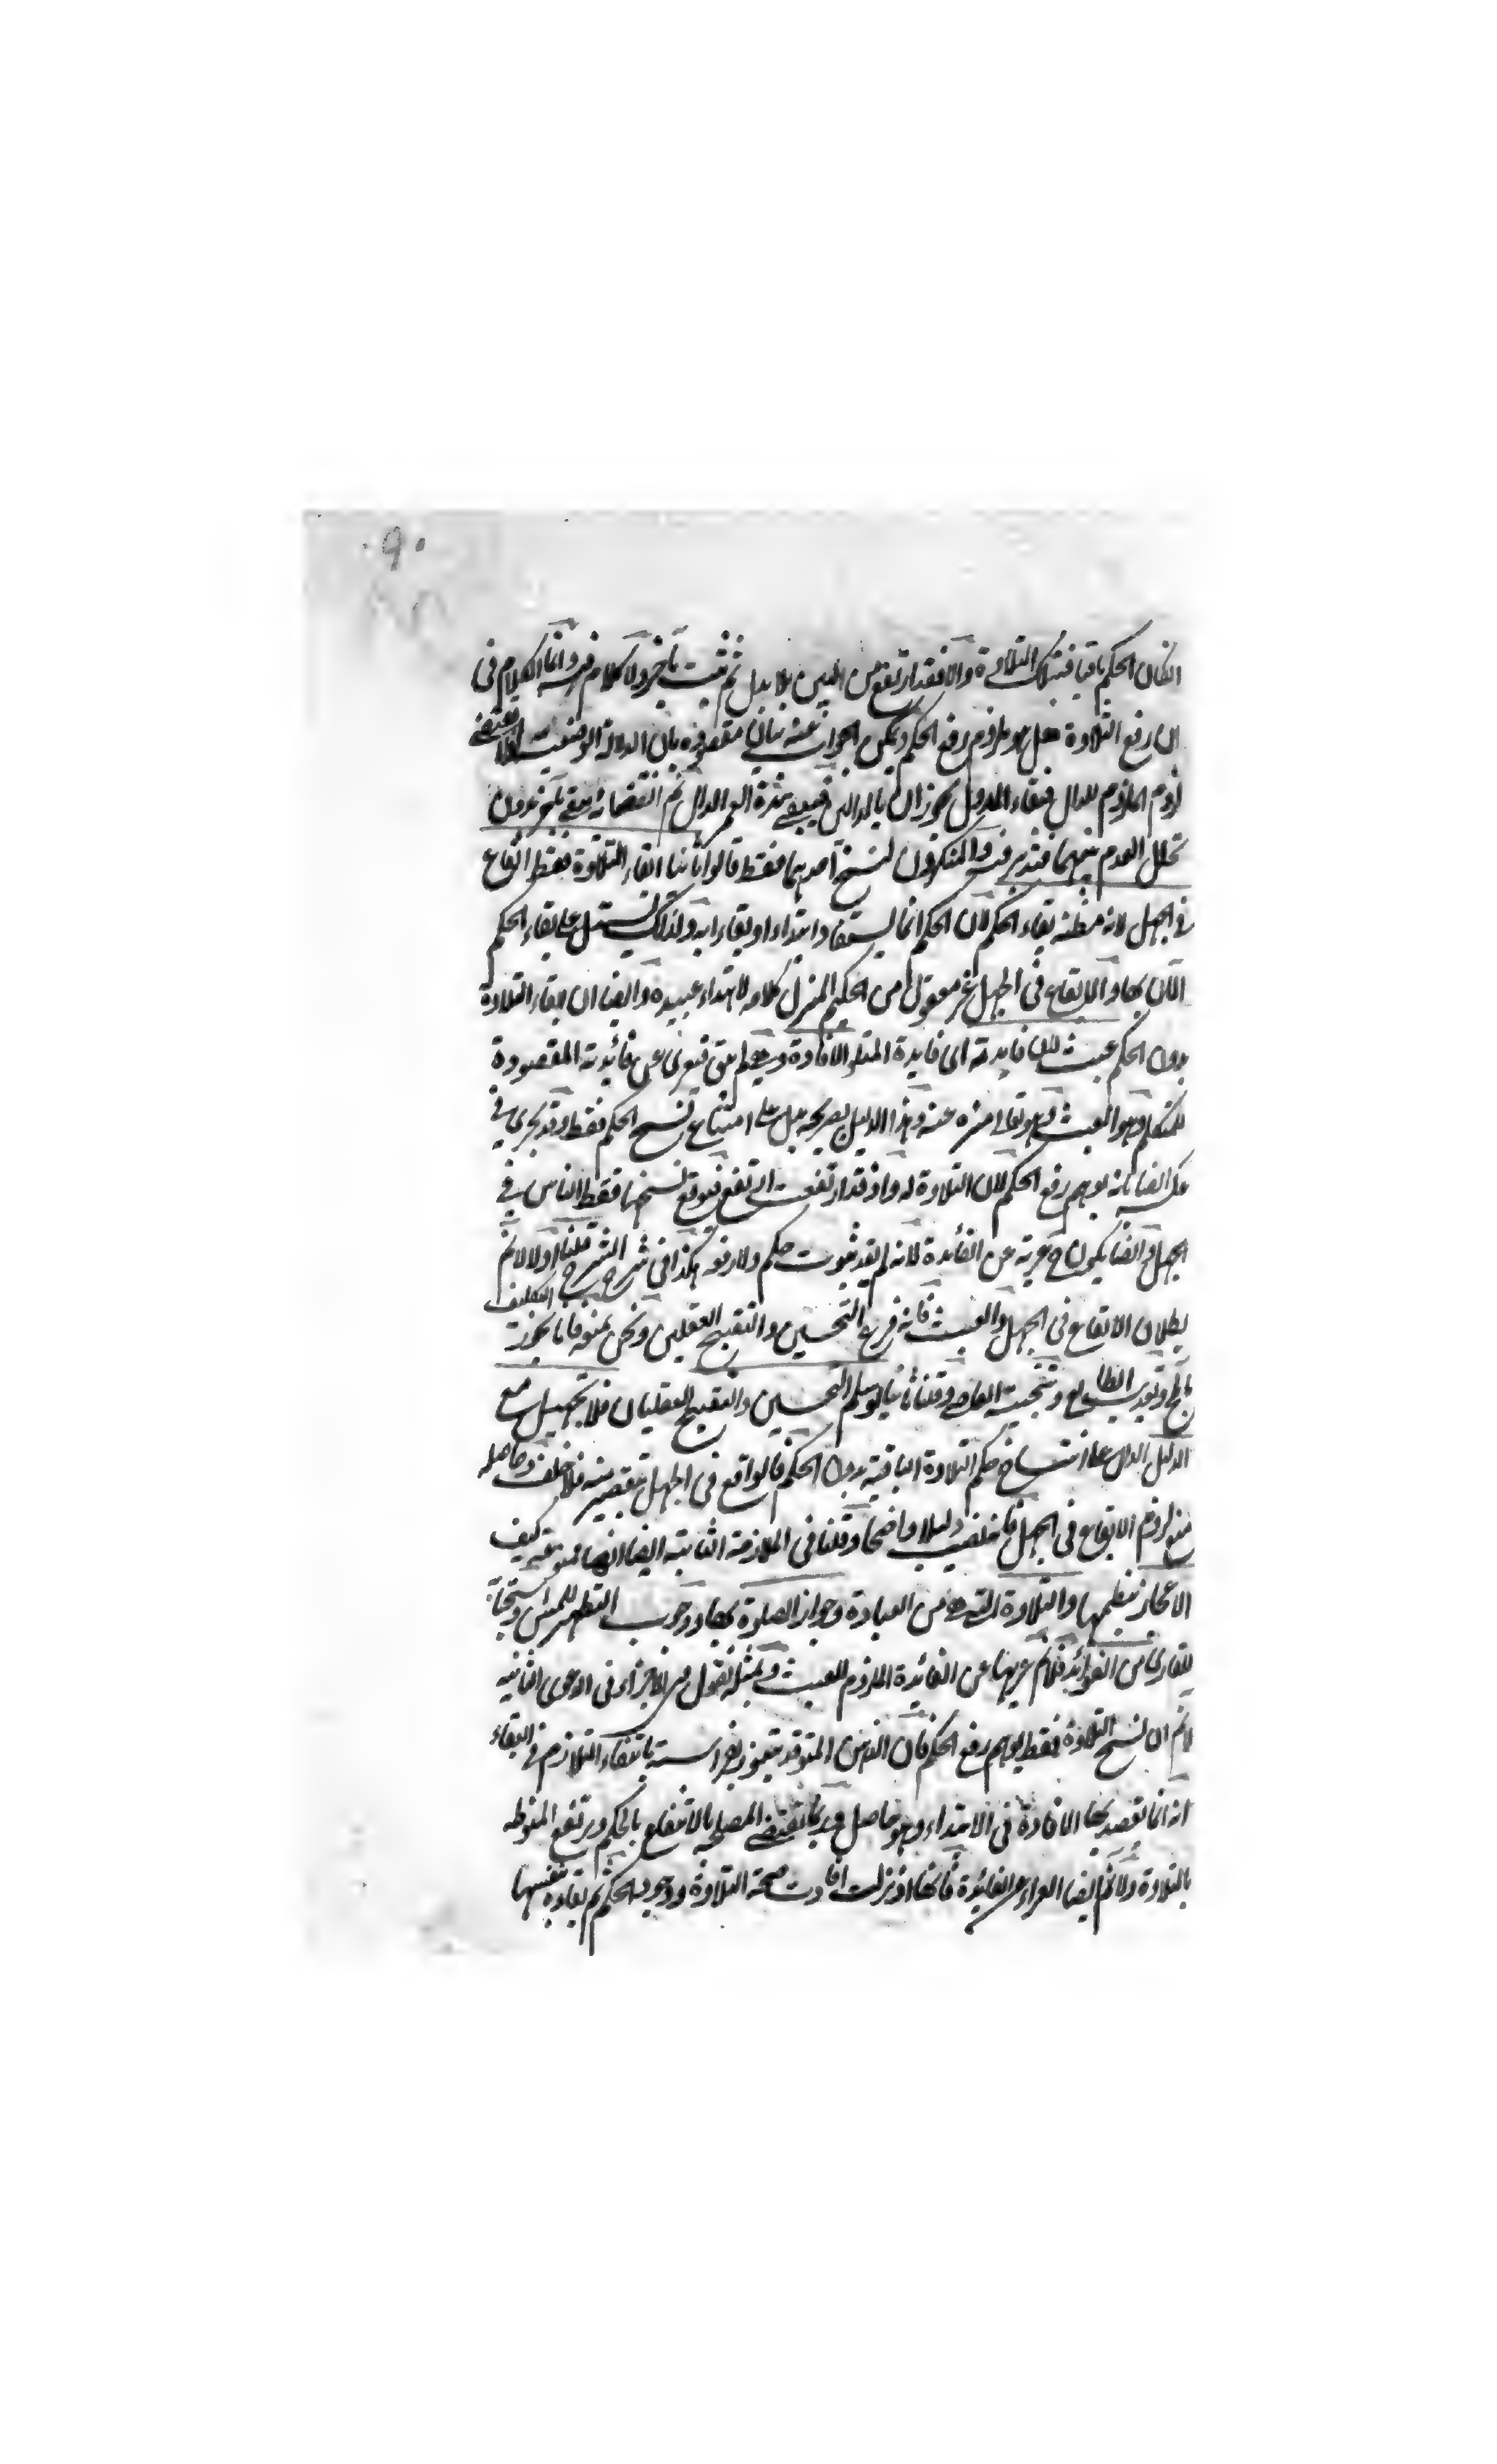 ٩٠
ان كان الحكم باقيا فبتلك التلاوة والا فقد ارتفع من البين بلا بدل ثم ثبت بآخر ولا كلام فيه وانما الكلام في
ان رفع التلاوة هل هو ملزوم رفع الحكم ويمكن الجواب عنه بيان مقصوده بان الدلالة الوضعية لا يقتضي
لزوم الملزوم للدال فبقاء المدلول يجوز ان بالدالين فيبقى مدة العمر الدال ثم انقضائه يبقى بآخر بدون
تخلل العدم بينهما فتدبر فيه والمنكرون لنسخ احدهما فقط قالوا ثانيا ابقاء التلاوة فقط ايقاع
في الجهل لانه مظنة بقاء الحكم لان الحكم انما يستفاد ابتداء او بقاء به ولذلك يستدل على بقاء الحكم
الآن بها والايقاع في الجهل غير معقول من الحكيم المنزل كلامه لاهتداء عبيده وايضا ان ابقاء التلاوة
بدون الحكم عبث لان فايدته اى فايدة المتلو الافادة ولم يبق فتعرى عن فائدته المقصودة
للمتكلم وهو العبث وهو تعالى منزه عنه وهذا الدليل بصريحه يدل على امتناع نسخ الحكم فقط وقد يجرى في
عكسه ايضا بانه يوهم رفع الحكم لان التلاوة له واذ قد ارتفعت ارتفع فيوقع نسخها فقط الناس في
الجهل وايضا يكون ح عرية عن الفائدة لانه لم يفد ثبوت حكم ولا رفعه هكذا في شرح الشرح قلنا اولا لا نم
بطلان الايقاع في الجهل والعبث فانه فرع التحسين والتقبيح العقليين ونحن نمنعه فانا نجوز التكليف
بالمح وتعذيب الطايع وتنجية العاصي وقلنا ثانيا لو سلم التحسين والتقبيح العقليان فلا تجهيل مع
الدليل الدال على انتساخ حكم التلاوة الباقية بدون الحكم فالواقع في الجهل بتقصير منه فلا خلف وحاصله
منع لزوم الايقاع في الجهل فانه نصب دليلا واضحا وقلنا في الملازمة الثانية ايضا انها ممنوعة كيف
الاعجاز بنظمها والتلاوة التي هي من العبادة وجواز الصلوة بها ووجوب التطهر للمس واستحبابه
للقارئ من الفوائد فلا نم عريها عن الفائدة الملزوم للعبث وبمثله نقول في الاجزاء في الدعوى الثانية
لا نم ان نسخ التلاوة فقط يوهم رفع الحكم فان الذهن المتوقد يتميز بفراسته بانتفاء التلازم في البقاء
انه انما يقصد بها الافادة في الابتداء وهو حاصل وربما يقتضي المصلحة بالانتفاع بالحكم ويرتفع المنوطة
بالتلاوة ولا نم ايضا العراء عن الفائدة فانها اذ نزلت افادت صحة التلاوة ووجوب الحكم ثم بقاؤه بنفسها